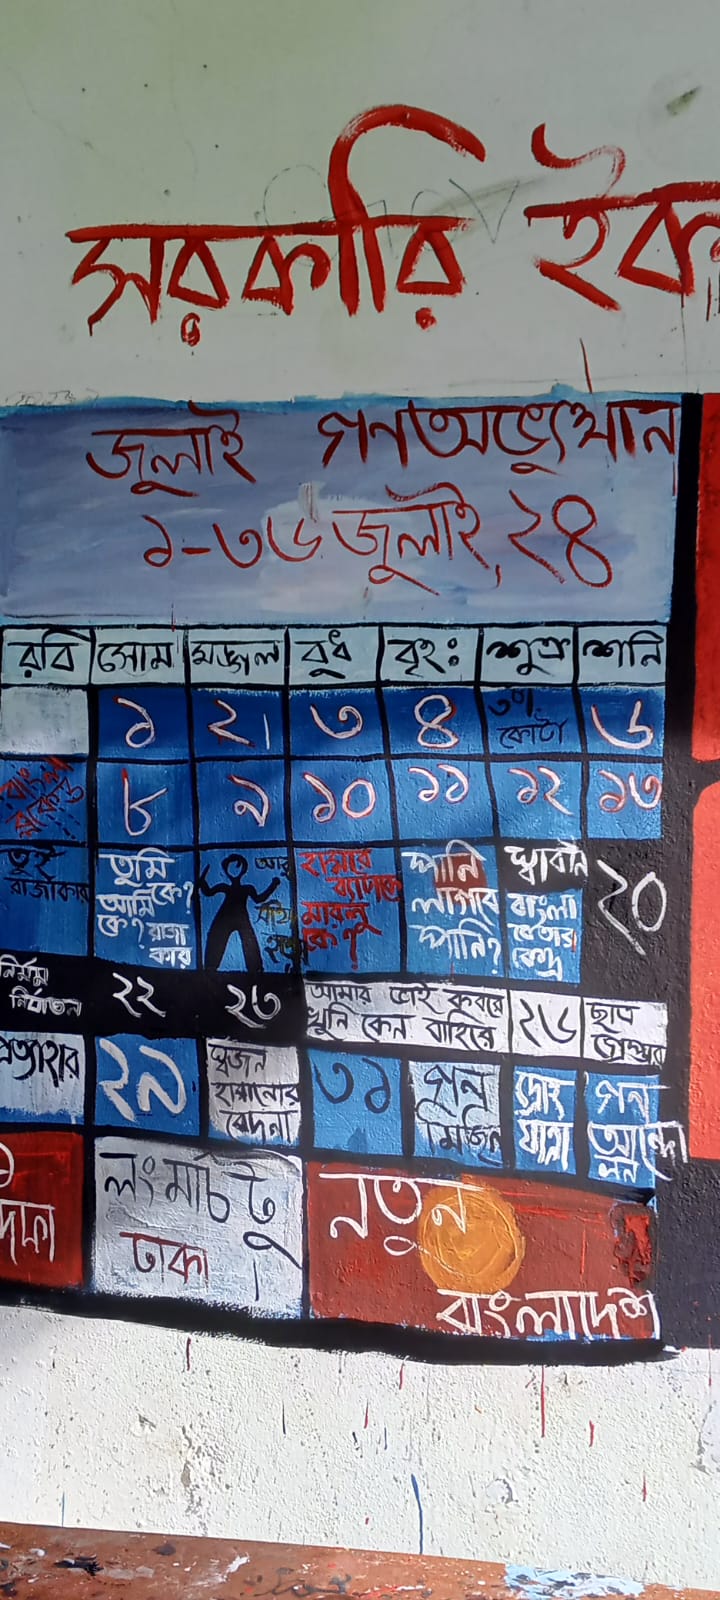 সরকারি ইক
জুলাই গনঅভ্যুত্থান
১-৩৬ জুলাই, ২৪
রবি সোম মঙ্গল বুধ বৃহঃ শুক্র শনি
১ ২ ৩ ৪ ৫ কোটা ৬
বাংলা ব্লকেড ৮ ৯ ১০ ১১ ১২ ১৩
তুই রাজাকার
তুমি
কে?
আমি
কে? রাজা
কার
আবু
হামার
ব্যাটাকে
মারলু
কে?
পানি
লাগবে
পানি?
স্বাধীন
বাংলা
বেতার
কেন্দ্র
২০
নির্মম
নির্যাতন
২২ ২৩
আমার ভাই কবরে
খুনি কেন বাহিরে
২৬
ছাত্র
গ্রেপ্তার
প্রত্যাহার
২৯
স্বজন
হারানোর
বেদনা
৩১
গন
মিছিল
দ্রোহ
যাত্রা
গন
আন্দোলন
১
দফা
লং মার্চ টু
ঢাকা
নতুন
বাংলাদেশ